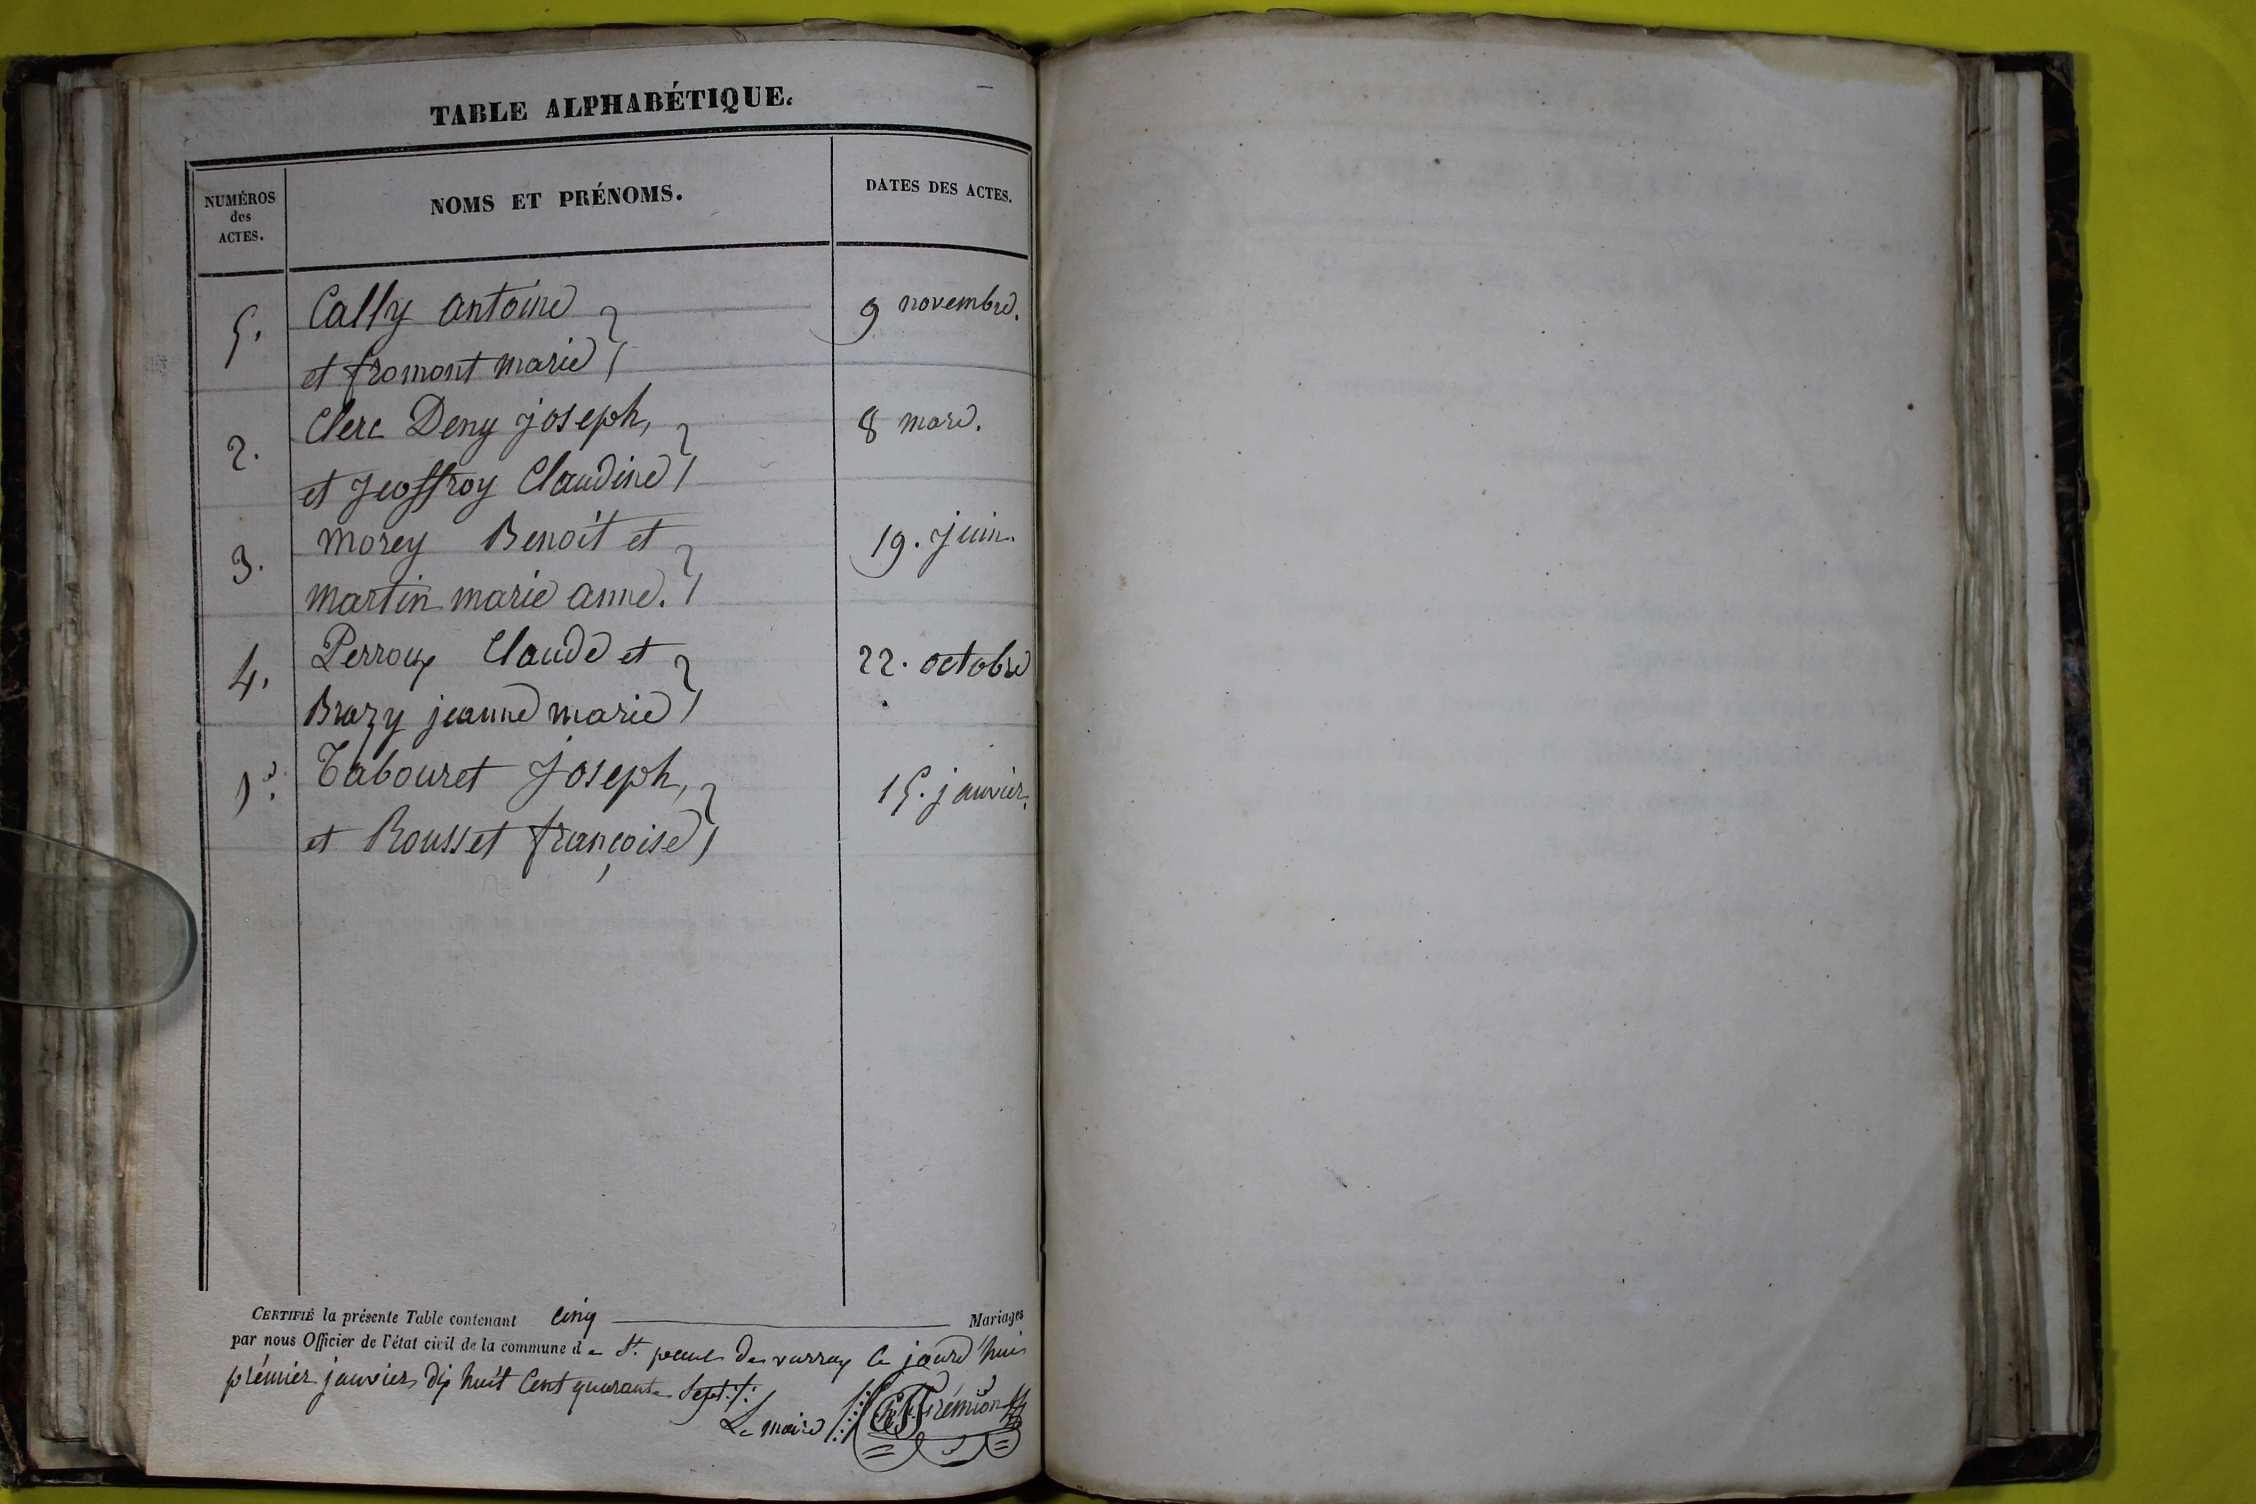 TABLE ALPHABÉTIQUE.
NUMÉROS
des
ACTES.
NOMS ET PRÉNOMS.
DATES DES ACTES.
5. Cally antoine 9 novembre.
et fromont marie
2. Clerc Deny joseph, 8 mars.
et jeoffroy Claudine
3. morey Benoit et 19. juin.
martin marie anne.
4. Perroux Claude et 22. octobre
Brazy jeanne marie
1er. Tabouret joseph, 15. janvier.
et Rousset françoise
CERTIFIÉ la présente Table contenant cinq Mariages
par nous Officier de l'état civil de la commune de St. paul de varray Ce jourd'hui
prémier janvier dix huit Cent quarante Sept
Le maire Frémion